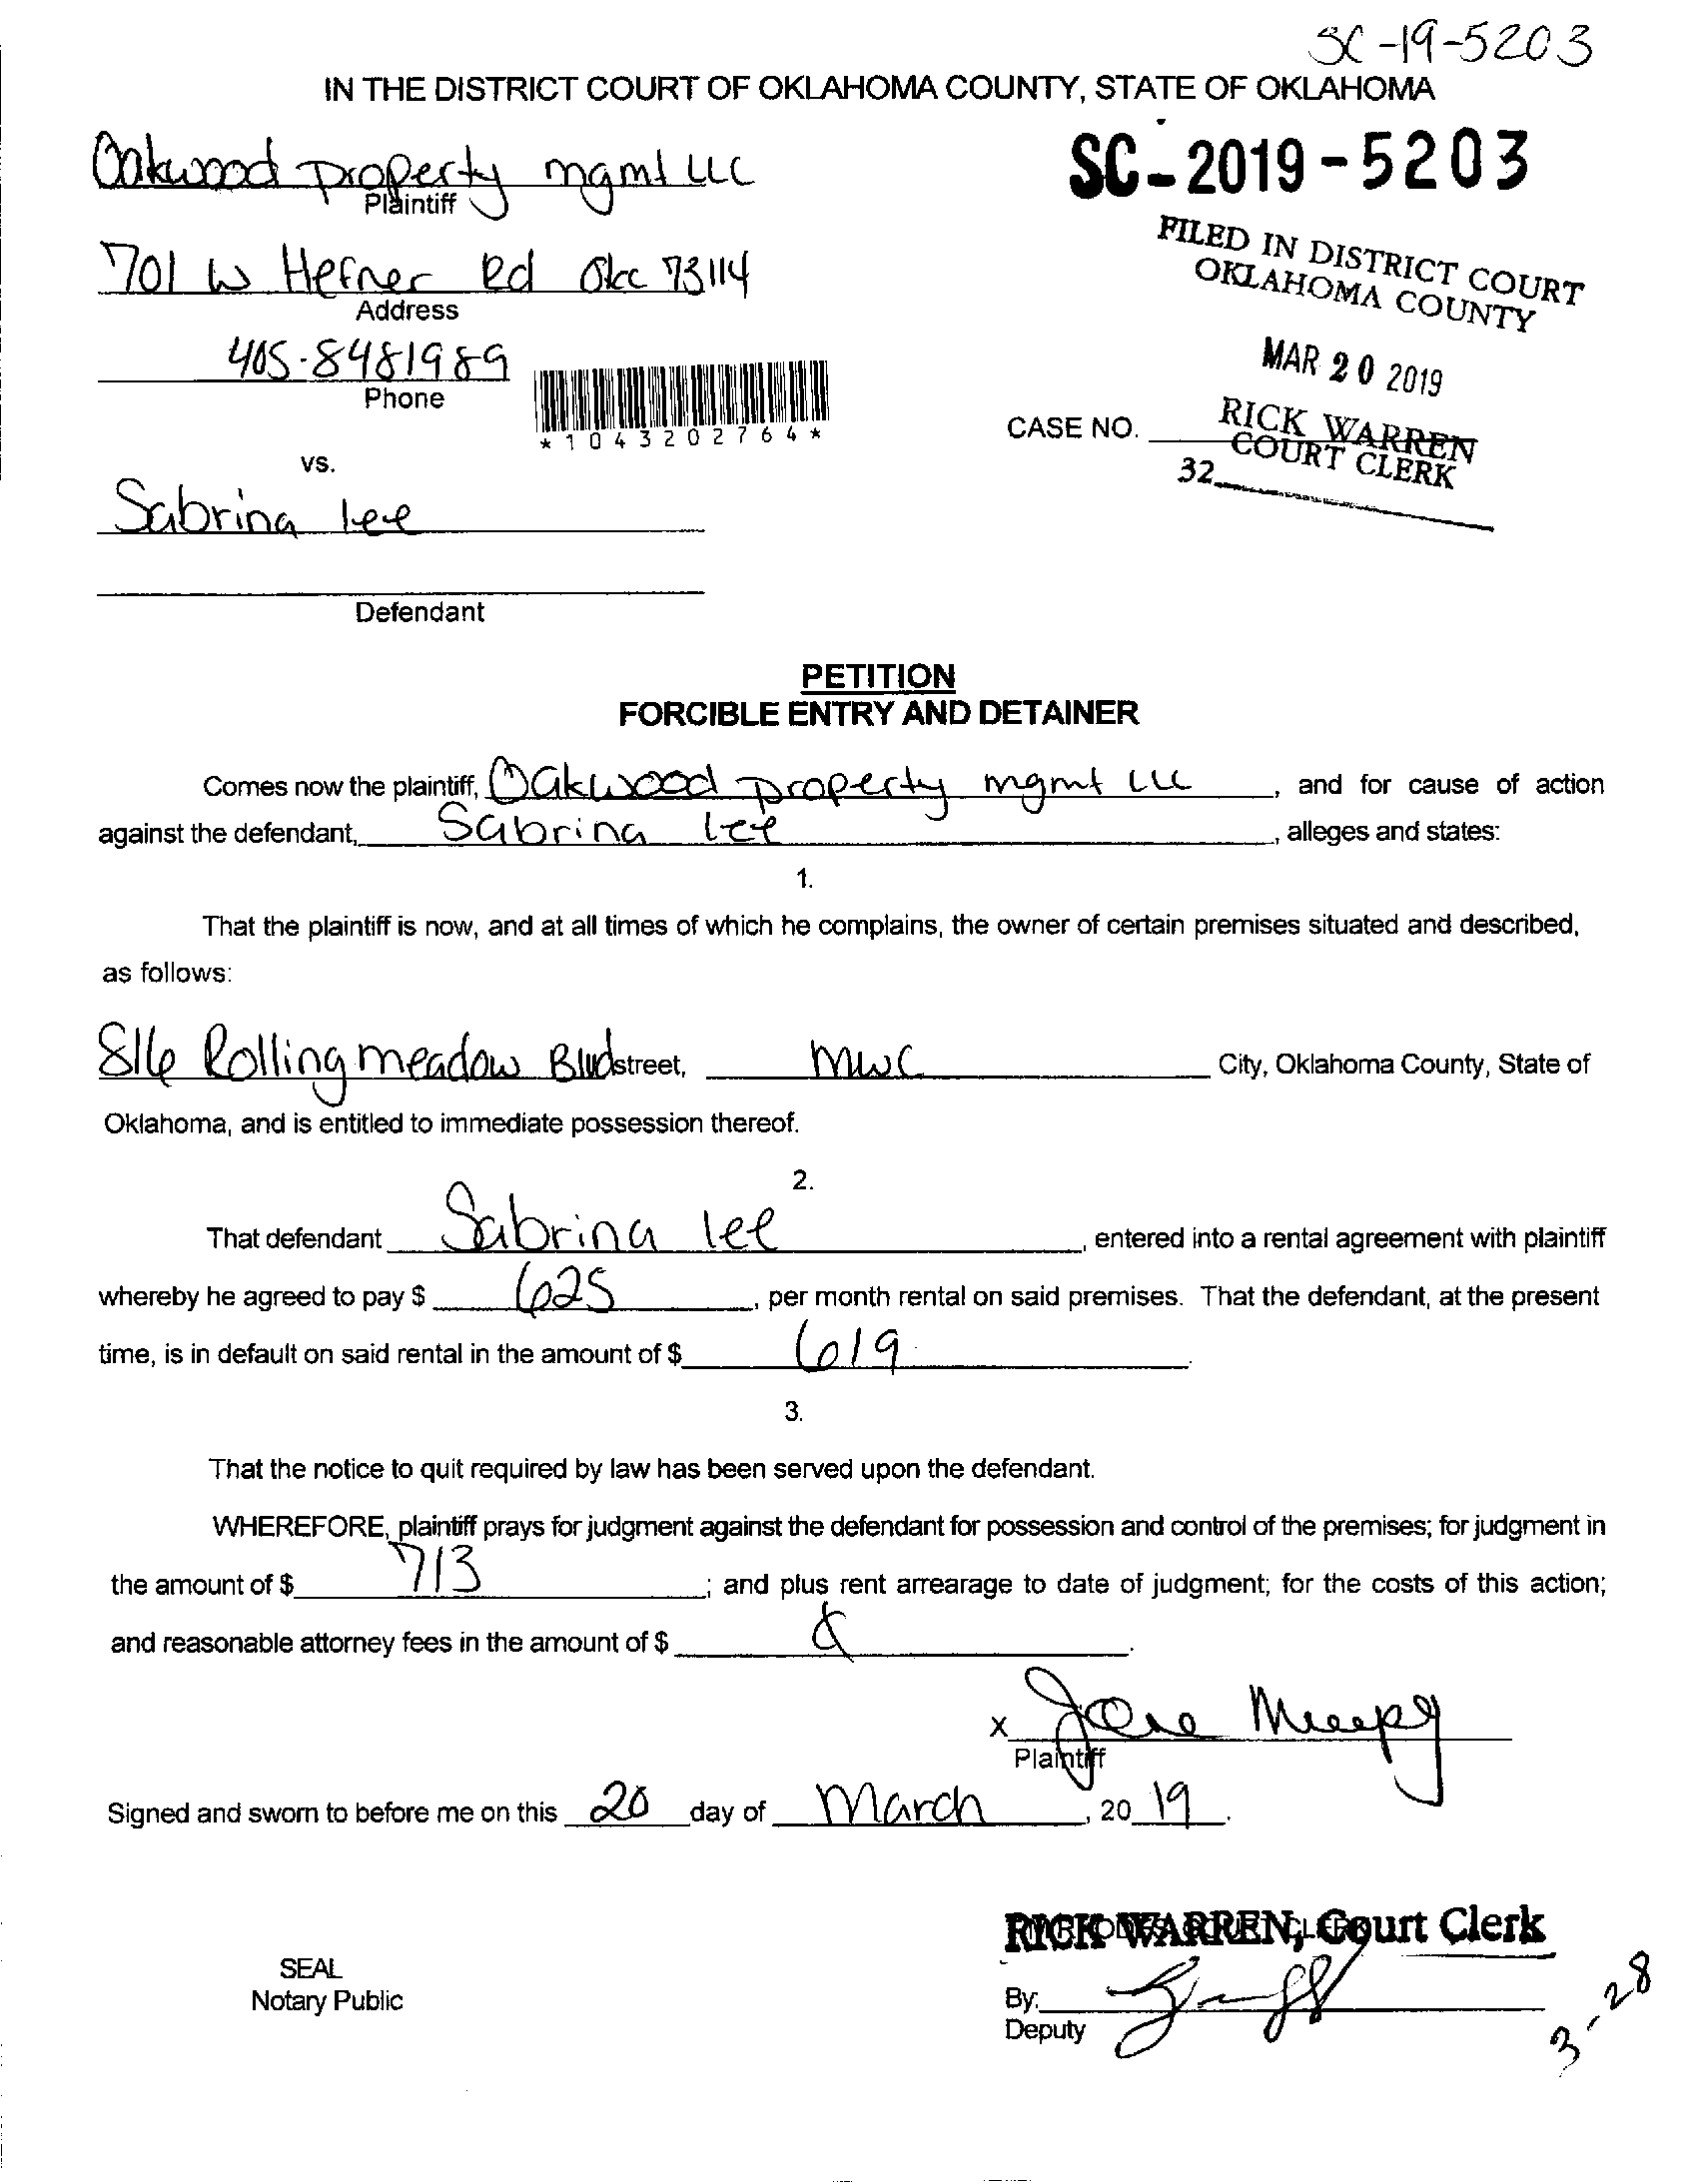 SC-19-5203
IN THE DISTRICT COURT OF OKLAHOMA COUNTY, STATE OF OKLAHOMA
Oakwood property mgmt LLC
Plaintiff
SC-2019-5203
FILED IN DISTRICT COURT
OKLAHOMA COUNTY
701 W Hefner Rd Okc 73114
Address
MAR 20 2019
405-8481989
Phone
*1043202764*
RICK WARREN
COURT CLERK
CASE NO.
32
vs.
Sabrina lee
Defendant
PETITION
FORCIBLE ENTRY AND DETAINER
Comes now the plaintiff, Oakwood property mgmt LLC, and for cause of action
against the defendant, Sabrina lee, alleges and states:
1.
That the plaintiff is now, and at all times of which he complains, the owner of certain premises situated and described,
as follows:
816 Rolling meadow Blvd street, mwc City, Oklahoma County, State of
Oklahoma, and is entitled to immediate possession thereof.
2.
That defendant Sabrina lee, entered into a rental agreement with plaintiff
whereby he agreed to pay $ 625, per month rental on said premises. That the defendant, at the present
time, is in default on said rental in the amount of $ 619.
3.
That the notice to quit required by law has been served upon the defendant.
WHEREFORE, plaintiff prays for judgment against the defendant for possession and control of the premises; for judgment in
the amount of $ 713; and plus rent arrearage to date of judgment; for the costs of this action;
and reasonable attorney fees in the amount of $
x
Plaintiff
Signed and sworn to before me on this 20 day of March, 20 19.
RICK WARREN, Court Clerk
SEAL
Notary Public
By:
Deputy
3-28